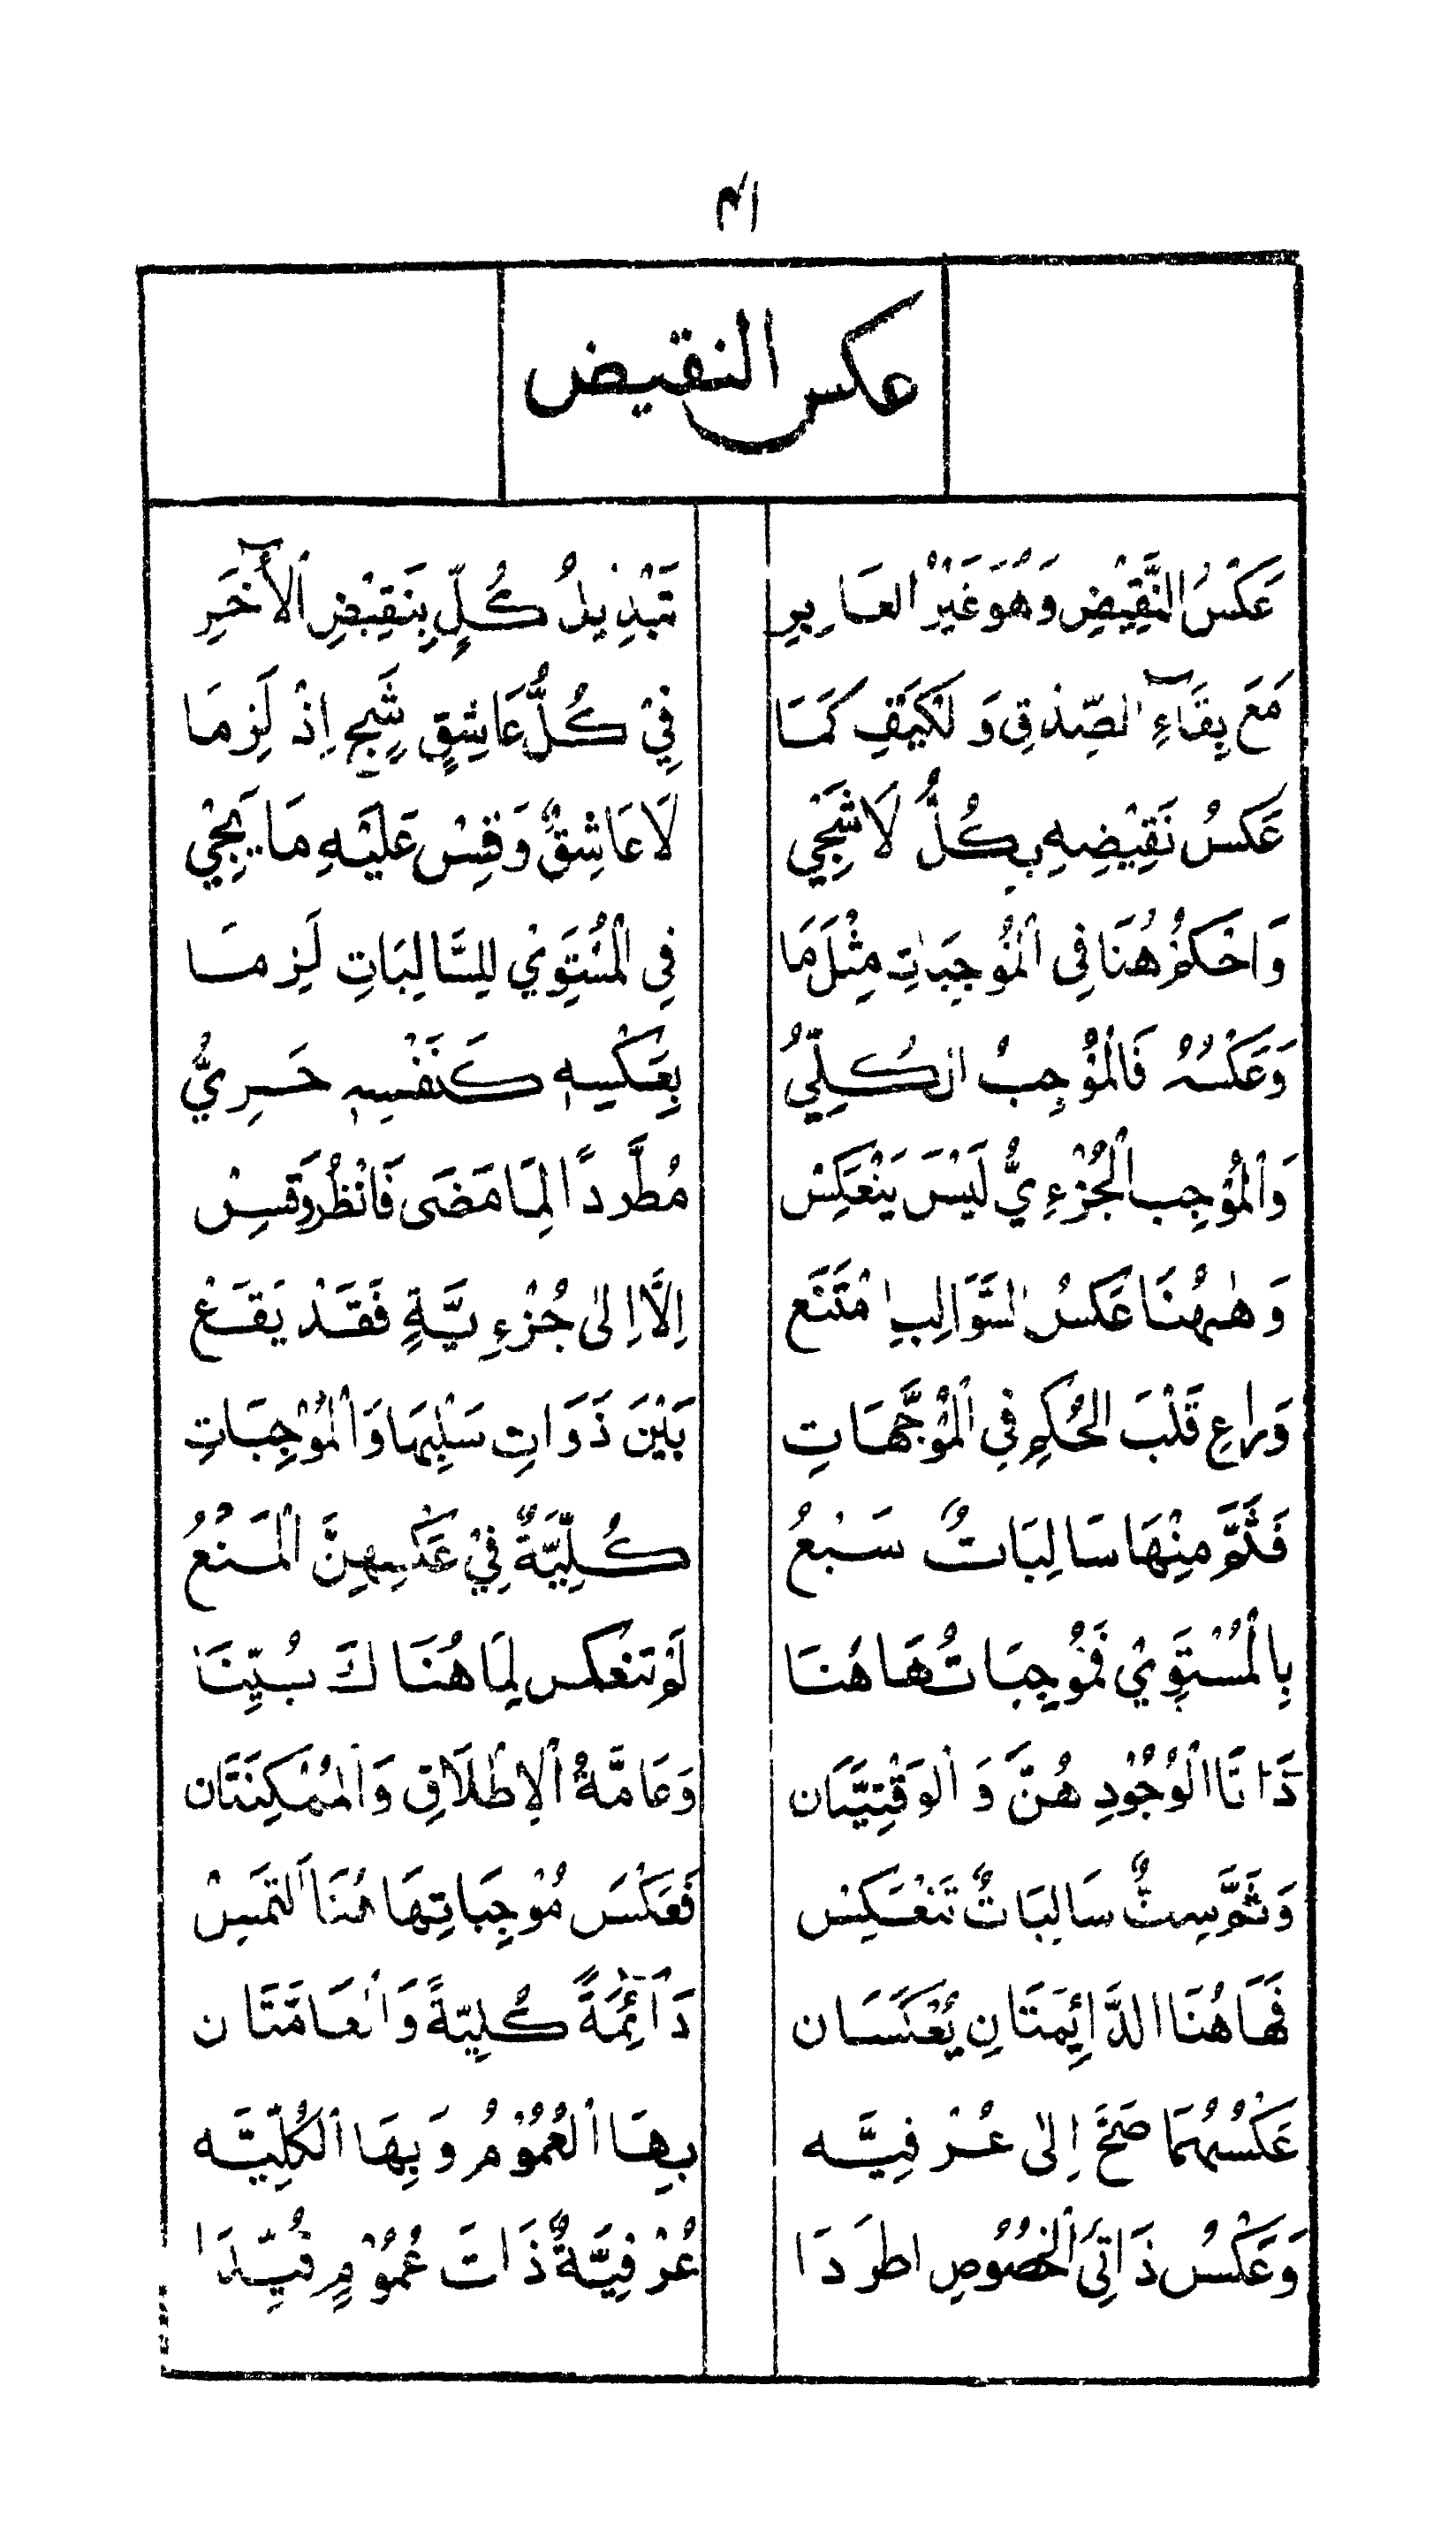 ٤١
عكس النقيض
عَكْسُ النَّقِيْضِ وَهُوَ غَيْرُ العَابِرِ تَبْدِيلُ كُلٍّ بِنَقِيْضِ الْآخَرِ
مَعَ بَقَاءِ الصِّدْقِ وَالْكَيْفِ كَمَا فِيْ كُلُّ عَاشِقٍ شَجٍ اِذْ لَزِمَا
عَكسُ نَقِيْضِهِ بِكُلُّ لَا شَجِيْ لَا عَاشِقٌ وَقِسْ عَلَيْهِ مَا يَجِيْ
وَاحْكُمْ هُنَا فِى الْمُوْجِبَاتِ مِثْلَ مَا فِى الْمُسْتَوِيْ لِلسَّالِبَاتِ لَزِمَا
وَعَكْسُهُ فَالْمُوْجِبُ الكُلِّيُّ بِعَكْسِهٖ كَنَفْسِهٖ حَرِيُّ
وَالْمُوْجِب الْجُزْءِيُّ لَيْسَ يَنْعَكِسْ مُطَّرِدًا لِمَا مَضَى فَانْظُرْ وَقِسْ
وَهٰهُنَا عَكسُ السَّوَالِبِ امْتَنَع اِلَّا اِلٰى جُزْءِيَّةٍ فَقَدْ يَقَعْ
وَرَاعِ قَلْبَ الحُكمِ فِي الْمُوَجَّهَاتِ بَيْنَ ذَوَاتِ سَلْبِهَا وَالْمُوْجِبَاتِ
فَثَمَّ مِنْهَا سَالِبَاتٌ سَبْعُ كُلِّيَّةٌ فِيْ عَكْسِهِنَّ الْمَنْعُ
بِالْمُسْتَوِيْ فَمُوْجِبَاتُهَا هُنَا لَمْ تَنْعَكِسْ لِمَا هُنَاكَ بُيِّنَا
ذَاتَا الْوُجُوْدِ هُنَّ وَالْوَقْتِيَّتَان وَعَامَّةُ الْإِطْلَاقِ وَالْمُمْكِنَتَان
وَثَمَّ سِتٌّ سَالِبَاتٌ تَنْعَكِسْ فَعَكْسَ مُوْجِبَاتِهَا هُنَا الْتَمِسْ
فَهَاهُنَا الدَّائِمَتَانِ يُعْكَسَان دَائِمَةً كُلِيّةً وَالْعَامَّتَان
عَكْسُهُمَا صَحَّ اِلٰى عُرْفِيَّه بِهَا الْعُمُوْمُ وَبِهَا الْكُلِّيَّه
وَعَكْسُ ذَاتَيِ الْخُصُوْصِ اطَّرَدَا عُرْفِيَّةٌ ذَاتَ عُمُوْمٍ قُيِّدَا